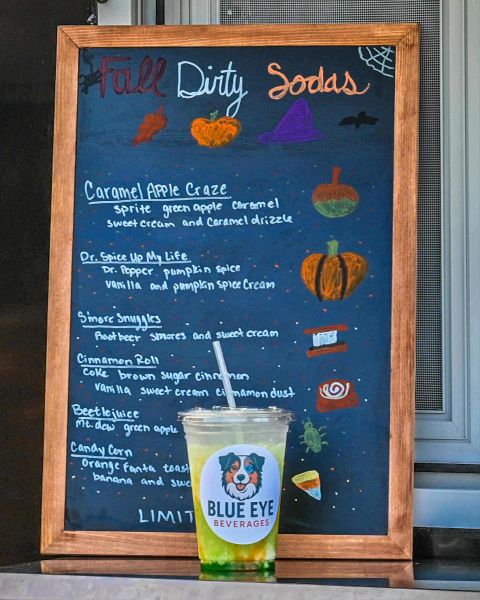 Fall Dirty Sodas
Caramel Apple Craze
sprite green apple caramel
sweet cream and caramel drizzle
Dr. Spice Up My Life
Dr. Popper pumpkin spice
vanilla and pumpkin spice cream
S'more Snuggles
Rootbeer smores and sweet cream
Cinnamon Roll
Coke brown sugar cinnamon
vanilla sweet cream cinnamon dust
Beetlejuice
Mt. dew green apple
Candy Corn
Orange Fanta
banana and
LIMIT
BLUE EYE
BEVERAGES